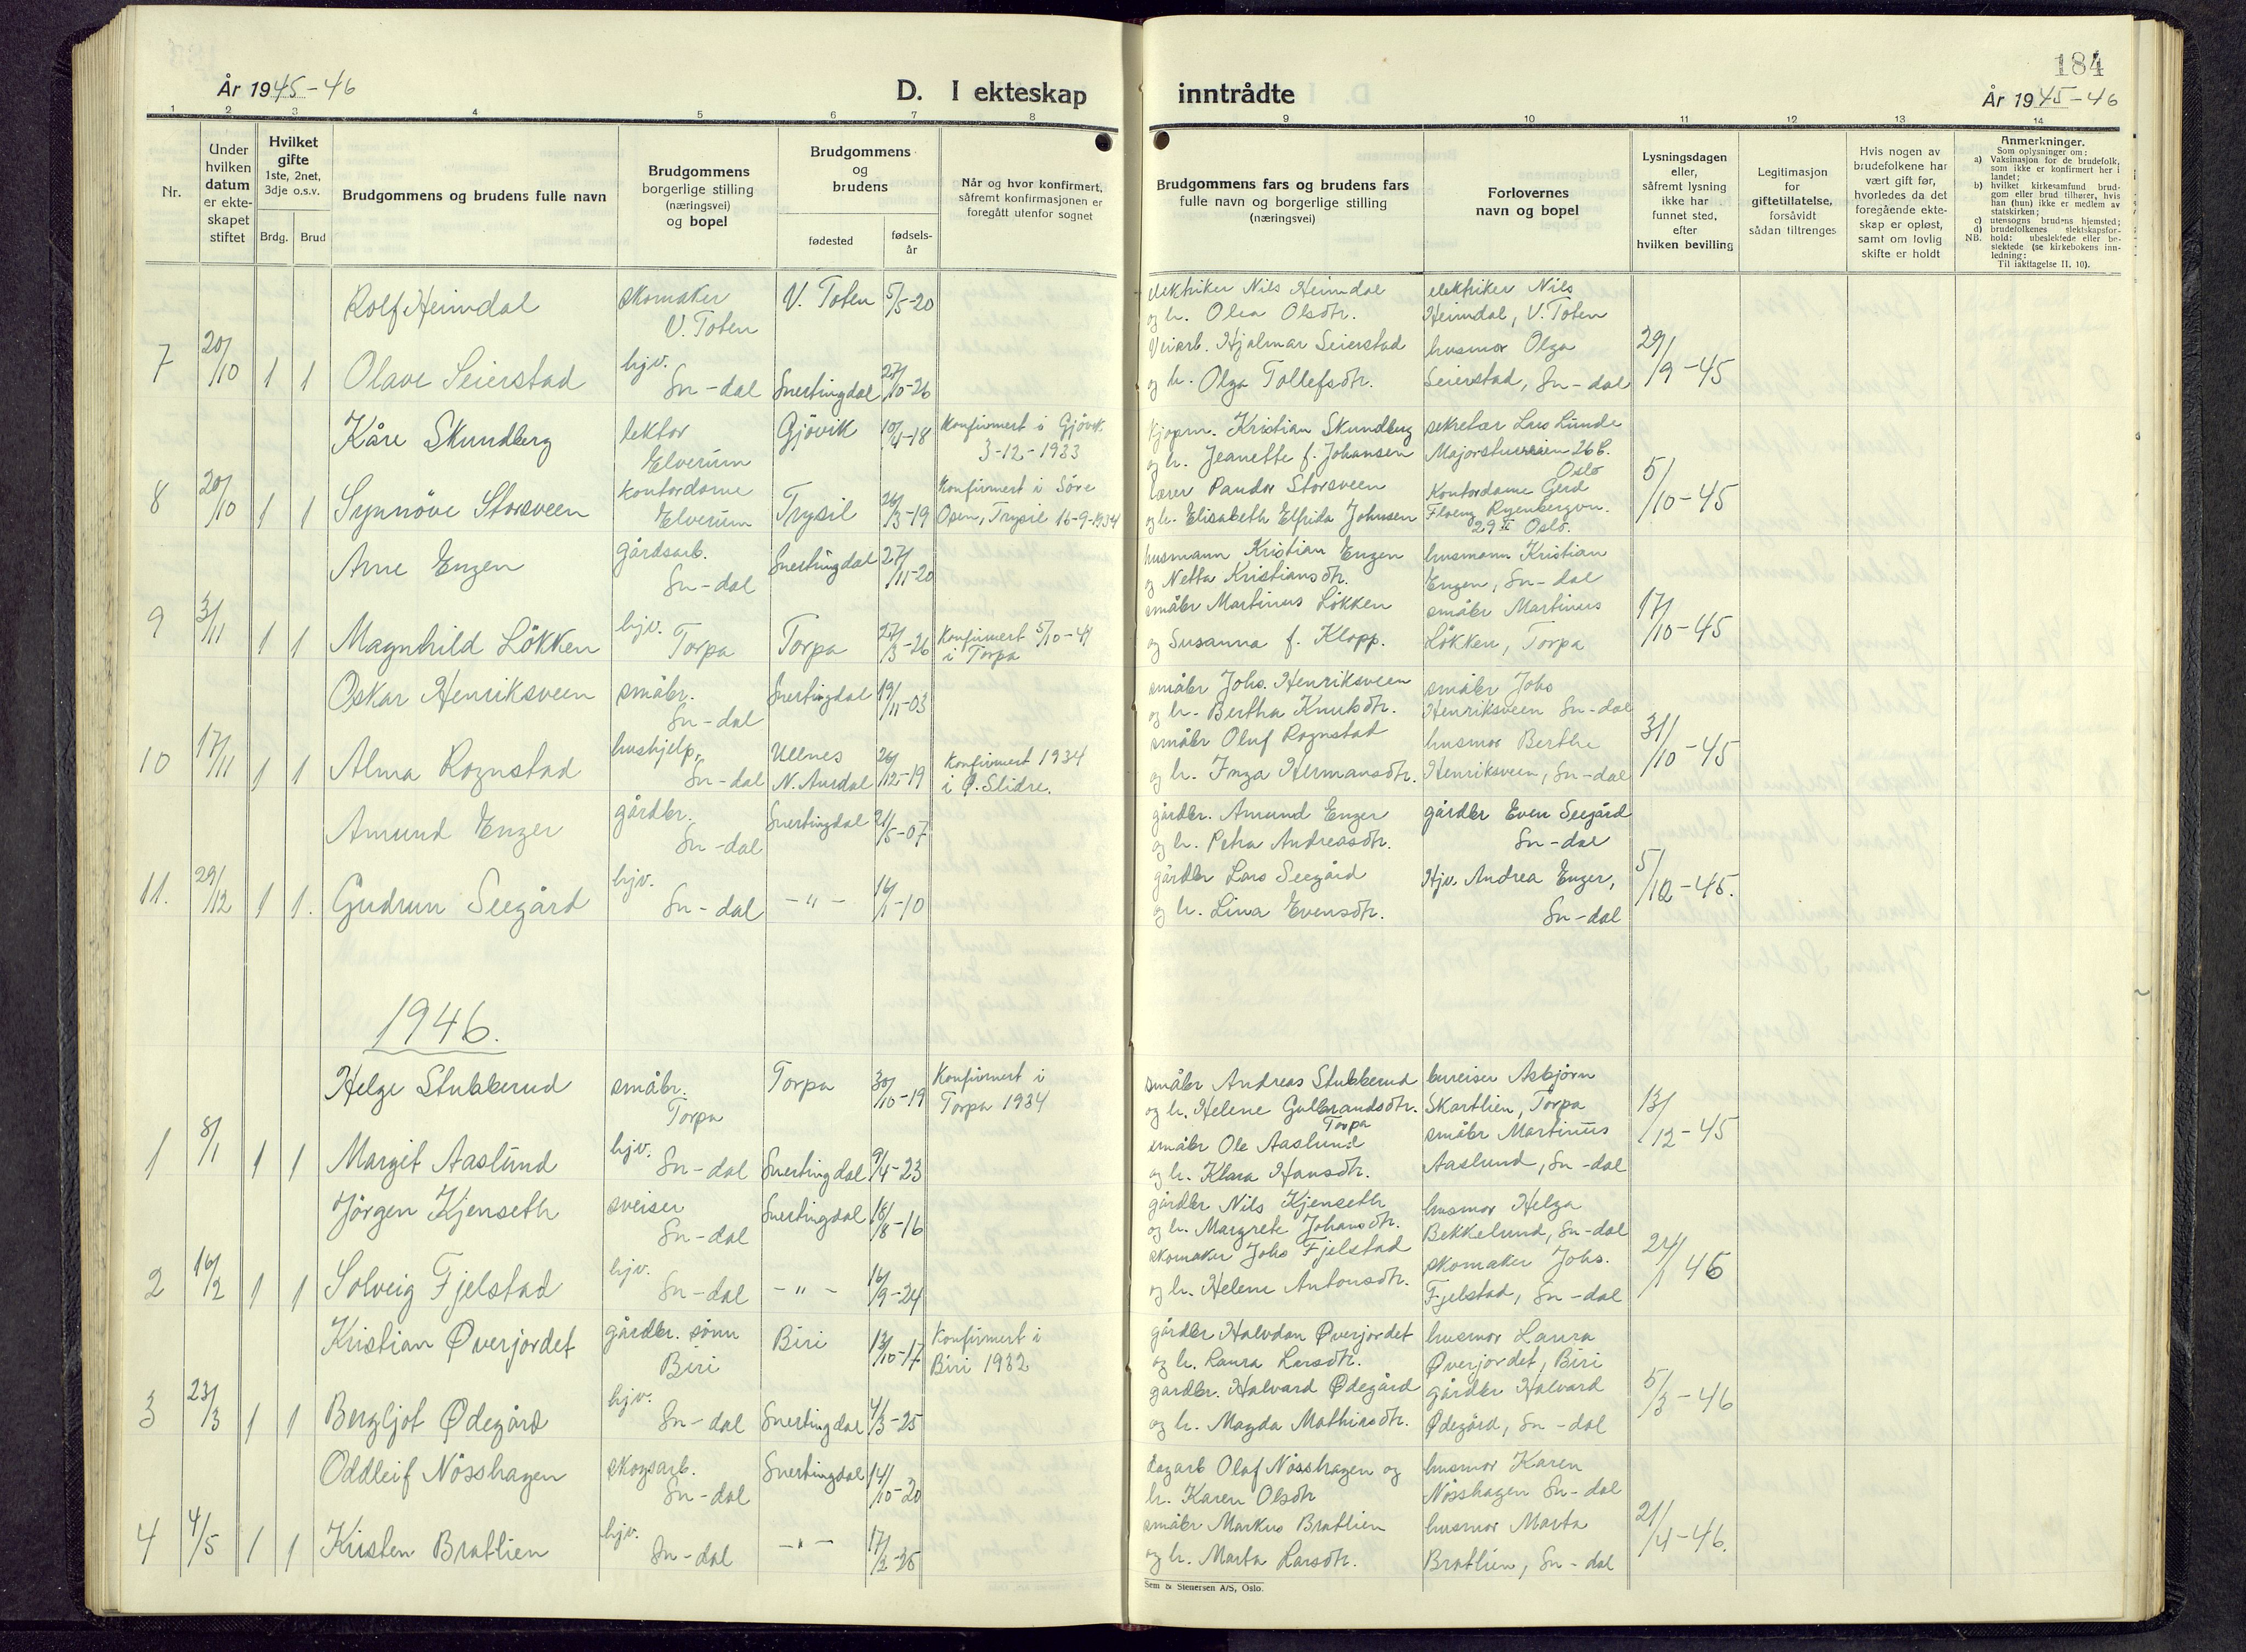 184
År 1945-46
D. I ekteskap inntrådte
År 1945-46
1 2 3 4 5 6 7 8 9 10 11 12 13 14
Nr.
Under hvilken datum er ekteskapet stiftet
Hvilket gifte 1ste, 2net, 3dje o.s.v.
Brdg. Brud
Brudgommens og brudens fulle navn
Brudgommens borgerlige stilling (næringsvei) og bopel
Brudgommens og brudens
fødested
fødselsår
Når og hvor konfirmert, såfremt konfirmasjonen er foregått utenfor sognet
Brudgommens fars og brudens fars fulle navn og borgerlige stilling (næringsvei)
Forlovernes navn og bopel
Lysningsdagen eller, såfremt lysning ikke har funnet sted, efter hvilken bevilling
Legitimasjon for giftetillatelse, forsåvidt sådan tiltrenges
Hvis nogen av brudefolkene har vært gift før, hvorledes da det foregående ekteskap er opløst, samt om lovlig skifte er holdt
Anmerkninger.
Som oplysninger om:
a) Vaksinasjon for de brudefolk, som ikke er konfirmert her i landet;
b) hvilket kirkesamfund brudgom eller brud tilhører, hvis han (hun) ikke er medlem av statskirken;
c) utensogns brudens hjemsted;
d) brudefolkenes slektskapsforhold: ubeslektede eller beslektede (se kirkebokens innledning:
NB.
Til iakttagelse II, 10).
Rolf Heimdal skomaker V. Toten V. Toten 5/5-20 elektriker Nils Heimdal og h. Olea Olsdtr. elektriker Nils Heimdal, V. Toten
7 20/10 1 1 Olave Seierstad hjv. Sn-dal Snertingdal 27/10-26 Veiarb. Hjalmar Seierstad og h. Olga Tollefsdtr. husmor Olga Seierstad, Sn-dal 29/9-45
Kåre Skundberg lektor Elverum Gjövik 10/4-18 Konfirmert i Gjövik 3-12-1933 kjøpm. Kristian Skundberg og h. Jeanette f. Johansen sekretær Lars Lunde Majorstuveien 26 B. Oslo
8 20/10 1 1 Synnöve Storsveen kontordame Elverum Trysil 26/3-19 Konfirmert i Söre Osen, Trysil 16-9-1934 lærer Pauder Storsveen og h. Elisabeth Elfrida Johnsen Kontordame Gerd 29 II Oslo. 5/10-45
Arne Engen gårdsarb. Sn-dal Snertingdal 27/11-20 husmann Kristian Engen og Netta Kristiansdtr. husmann Kristian Engen, Sn-dal
9 3/11 1 1 Magnhild Lökken hjv. Torpa Torpa 27/3-26 Konfirmert 5/10-41 i Torpa småbr Martinus Lökken og Susanna f. Klopp. småbr Martinus Lökken, Torpa 17/10-45
Oskar Henriksveen småbr. Sn-dal Snertingdal 19/11-03 småbr Johs. Henriksveen og h. Bertha Knutsdtr. småbr Johs Henriksveen Sn-dal
10 17/11 1 1 Alma Rognstad hushjelp, Sn-dal Ulnes N. Aurdal 26/12-19 Konfirmert 1934 i Ø. Slidre. småbr Oluf Rognstad og h. Inga Hermansdtr. husmor Berthe Henriksveen, Sn-dal 31/10-45
Amund Enger gårdbr. Sn-dal Snertingdal 21/5-07 gårdbr. Amund Enger og h. Petra Andreasdtr. gårdbr Even Seegård Sn-dal
11. 29/12 1 1. Gudrun Seegård hjv. Sn-dal -"- 16/1-10 gårdbr Lars Seegård og h. Lina Evensdtr. Hjv. Andrea Enger, Sn-dal 5/12-45.
1946.
Helge Stubberud småbr. Torpa Torpa 30/10-19 Konfirmert i Torpa 1934 småbr Andreas Stubberud og h. Helene Gulbrandsdtr. Torpa bureiser Asbjörn Skartlien, Torpa
1 8/1 1 1 Margit Aaslund hjv. Sn-dal Snertingdal 9/4-23 småbr Ole Aaslund og h. Klara Hansdtr. småbr Martinus Aaslund, Sn-dal 13/12-45
Jörgen Kjenseth sveiser Sn-dal Snertingdal 18/8-16 gårdbr Nils Kjenseth og h. Margrete Johansdtr. husmor Helga Bekkelund, Sn-dal
2 16/2 1 1 Solveig Fjelstad hjv. Sn-dal -"- 16/9-24 skomaker Johs Fjelstad og h. Helene Antonsdtr. skomaker Johs. Fjelstad, Sn-dal 24/1 46
Kristian Øverjordet gårdbr. sønn Biri Biri 13/10-17 Konfirmert i Biri 1932 gårdbr Halvdan Øverjordet og h. Laura Larsdtr. husmor Laura Øverjordet, Biri
3 23/3 1 1 Bergljot Ødegård hjv. Sn-dal Snertingdal 4/3-25 gardbr. Halvard Ødegård og h. Magda Mathiasdtr. gårdbr Halvard Ødegård, Sn-dal 5/3-46
Oddleif Nösshagen skogsarb. Sn-dal Snertingdal 14/10-20 dagarb Olaf Nösshagen og h. Karen Olsdtr husmor Karen Nösshagen Sn-dal
4 4/5 1 1 Kirsten Bratlien hjv. Sn-dal -"- 17/2-25 småbr Markus Bratlien og h. Marta Larsdtr. husmor Marta Bratlien, Sn-dal 21/4-46.
Sem & Stenersen A/S, Oslo.